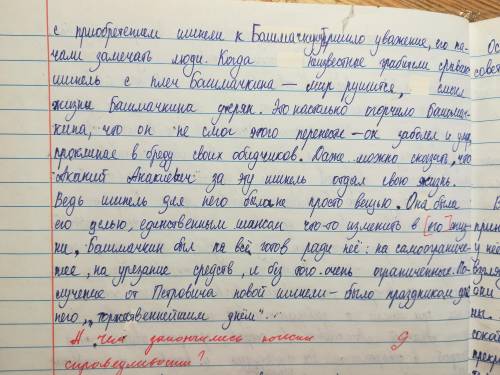 с приобретением шинели к Башмачкину пришло уважение, его на-
чали замечать люди. Когда неизвестные грабители срывают
шинель с плеч Башмачкина — мир рушится, смысл
жизни Башмачкина утерян. Это настолько огорчило Башмач-
кина, что он не смог этого перенести – он заболел и умер,
проклиная в бреду своих обидчиков. Даже можно сказать, что
Акакий Акакиевич за эту шинель отдал свою жизнь.
Ведь шинель для него была не просто вещью. Она была
его целью, единственным шансом что-то изменить в [его] жиз-
ни, Башмачкин был на всё готов ради неё: на самоограниче-
ние, на урезание средств, и без того очень ограниченные. По-
лучение от Петровича новой шинели – было праздником для
него, „торжественнейшим днём“.
А чем закончились поиски
справедливости?